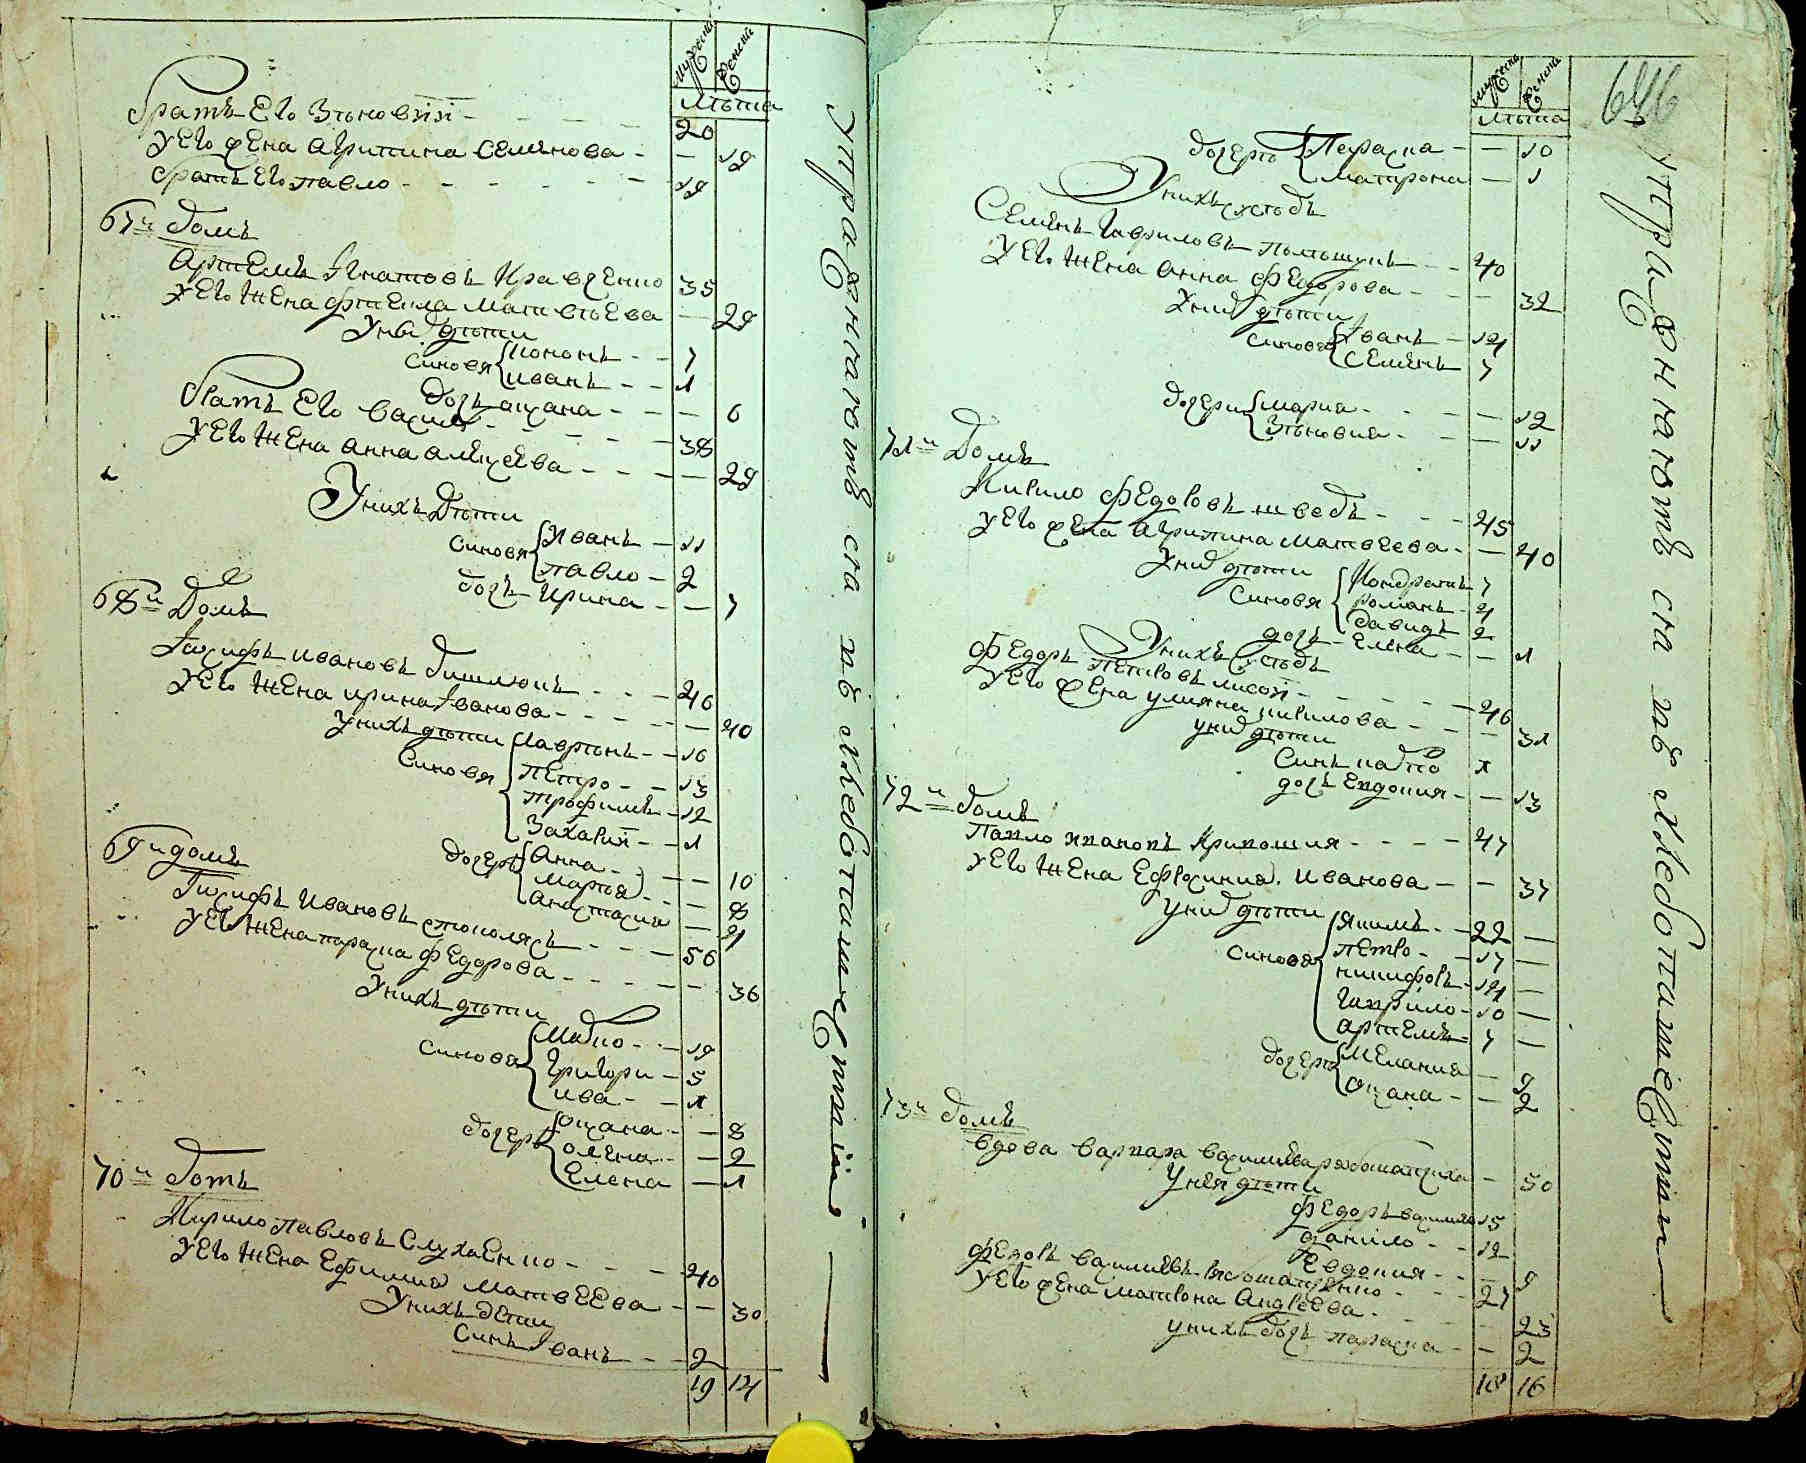 мужеска женска
лѣта
братъ его Зѣновѣй 20
у его жена Агрипина Семенова 19
братъ его Павло 19
67й домъ
Артемъ Игнатовъ Кравченко 35
у его жена Фтекла Матвѣева 29
у них дѣти
синовя Кононъ 7
Иванъ 1
дочъ Оксана 6
братъ его Василь 38
у его жена Анна Алексѣева 29
у нихъ дѣти
синовя Иванъ 11
Павло 2
дочъ Ирина 7
68й домъ
Иосифъ Ивановъ 46
у его жена Ирина Іванова 40
у нихъ дѣти
синовя Лаврѣнъ 16
Петро 13
Трофимъ 12
Захарий 1
дочери Анна 10
Марѳа 8
Анастасия 4
69й домъ
Иосифъ Ивановъ 56
у его жена Параска Федорова 36
у нихъ дѣти
синовя Марко 19
Григори 5
Ива 1
дочери Оксана 8
Олена 2
Елена 1
70й домъ
Кирило Павловъ Слухаенко 40
у его жена Ефимия Матвеева 30
у нихъ дети
синъ Іванъ 2
19 14
646
мужеска женска
лѣта
дочери Параска 10
Матрона 1
у нихъ сусѣдъ
Семенъ Гавриловъ 40
у его жена Анна Федорова 32
у них дѣти
синовя Іванъ 14
Семенъ 7
дочери Мария 12
Зѣновия 11
71й домъ
Кирило Федоровъ Шведъ 45
у его жена Агрипина Матвеева 40
у них дѣти
синовя Кондратъ 7
Романъ 4
Давидъ 2
дочъ Елена 1
у нихъ сусѣдъ
Федоръ Петровъ Лисой 46
у его жена Улияна Кирилова 31
у них дѣти
синъ Павло 1
дочъ Евдокия 13
72й домъ
Павло Ивановъ Кривошия 47
у его жена Ефросиния Иванова 37
у них дѣти
синовя Якимъ 22
Петро 17
Никифоръ 14
Гаврило 10
Артемъ 7
дочери Мелания 9
Оксана 2
73й домъ
вдова Варвара Василиева 50
у нея дѣти
Федоръ 15
Данило 12
Евдокия 9
Федоръ Василиевъ 27
у его жена Матрона Андреева 23
у нихъ дочъ Параска 2
18 16